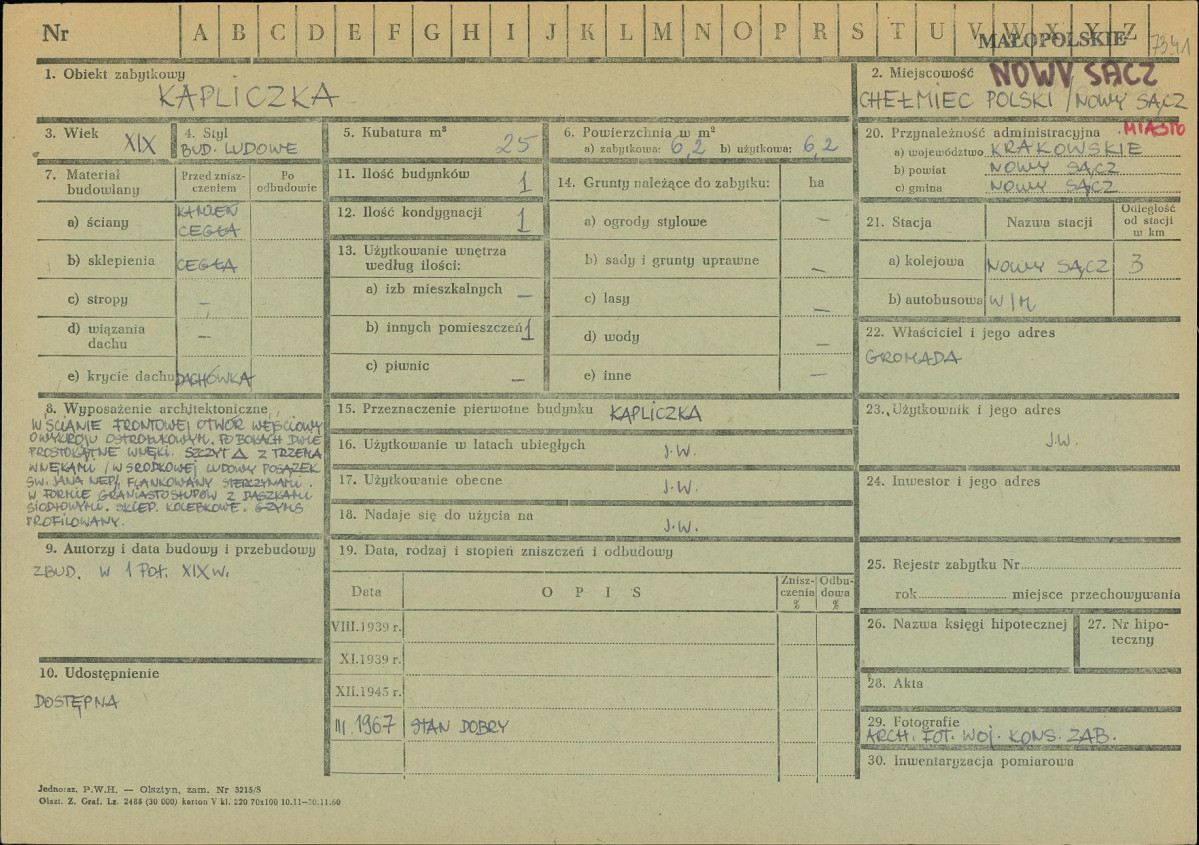 Nr A B C D E F G H I J K L M N O P R S T U V W X Y Z
MAŁOPOLSKIE 7341
1. Obiekt zabytkowy
KAPLICZKA
2. Miejscowość NOWY SĄCZ
CHEŁMIEC POLSKI / NOWY SĄCZ
MIASTO
3. Wiek XIX
4. Styl
BUD. LUDOWE
5. Kubatura m³ 25
6. Powierzchnia w m²
a) zabytkowa: 6,2 b) użytkowa: 6,2
20. Przynależność administracyjna
a) województwo KRAKOWSKIE
b) powiat NOWY SĄCZ
c) gmina NOWY SĄCZ
7. Materiał budowlany
Przed zniszczeniem
Po odbudowie
a) ściany KAMIEŃ
CEGŁA
b) sklepienia CEGŁA
c) stropy —
d) wiązania dachu —
e) krycie dachu DACHÓWKA
11. Ilość budynków 1
12. Ilość kondygnacji 1
13. Użytkowanie wnętrza
według ilości:
a) izb mieszkalnych —
b) innych pomieszczeń 1
c) piwnic —
14. Grunty należące do zabytku: ha
a) ogrody stylowe —
b) sady i grunty uprawne —
c) lasy —
d) wody —
e) inne —
21. Stacja Nazwa stacji Odległość od stacji w km
a) kolejowa NOWY SĄCZ 3
b) autobusowa W/M
22. Właściciel i jego adres
GROMADA
8. Wyposażenie architektoniczne
W ŚCIANIE FRONTOWEJ OTWÓR WEJŚCIOWY
O WYKROJU OSTROŁUKOWYM. PO BOKACH DWIE
PROSTOKĄTNE WNĘKI. SZCZYT △ Z TRZEMA
WNĘKAMI /W ŚRODKOWEJ LUDOWY POSĄŻEK
ŚW. JANA NEP/, FLANKOWANY STERCZYNAMI
W FORMIE GRANIASTOSŁUPÓW Z DASZKAMI
SIODŁOWYMI. SKLEP. KOLEBKOWE. GZYMS
PROFILOWANY.
15. Przeznaczenie pierwotne budynku KAPLICZKA
16. Użytkowanie w latach ubiegłych J.W.
17. Użytkowanie obecne J.W.
18. Nadaje się do użycia na J.W.
23. Użytkownik i jego adres
J.W.
24. Inwestor i jego adres
9. Autorzy i data budowy i przebudowy
ZBUD. W 1 POŁ. XIX w.
10. Udostępnienie
DOSTĘPNA
19. Data, rodzaj i stopień zniszczeń i odbudowy
Data O P I S Zniszczenia % Odbudowa %
VIII.1939 r.
XI.1939 r.
XII.1945 r.
III.1967 STAN DOBRY
25. Rejestr zabytku Nr
rok miejsce przechowywania
26. Nazwa księgi hipotecznej
27. Nr hipoteczny
28. Akta
29. Fotografie
ARCH. FOT. WOJ. KONS. ZAB.
30. Inwentaryzacja pomiarowa
Jednoraz. P.W.H. — Olsztyn, zam. Nr 3215/S
Olszt. Z. Graf. Lz. 2485 (30 000) karton V kl. 220 70x100 10.11-30.11.60